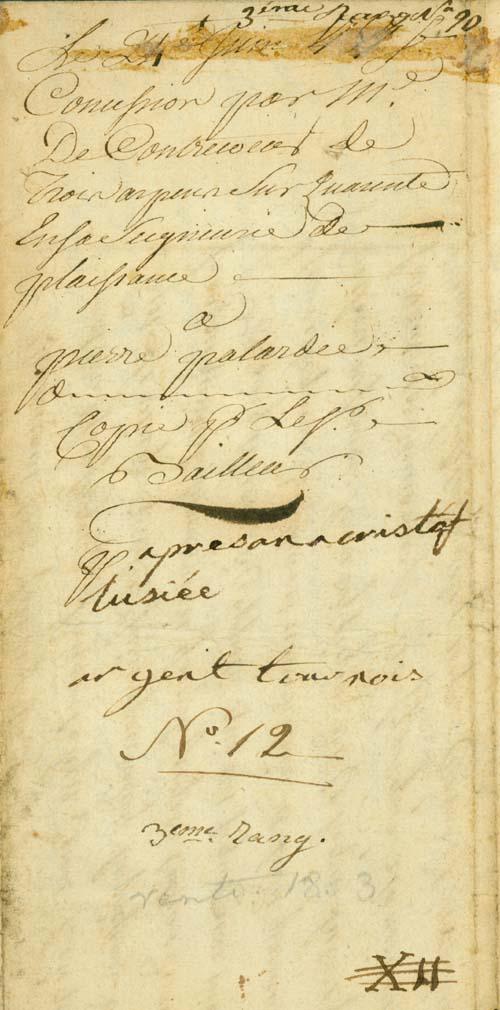 3eme Rang No 90
Le 24e Juin
Concession par Mr
De Contrecoeur de
Trois arpens Sur Quarente
En Sa Seigneurie de
plaisance
a
pierre palardee
Copie pr Le Sr
Bailleur
apresan a cristof
lusiée
argent tournois
No. 12
3eme Rang.
vente 18 3
XII